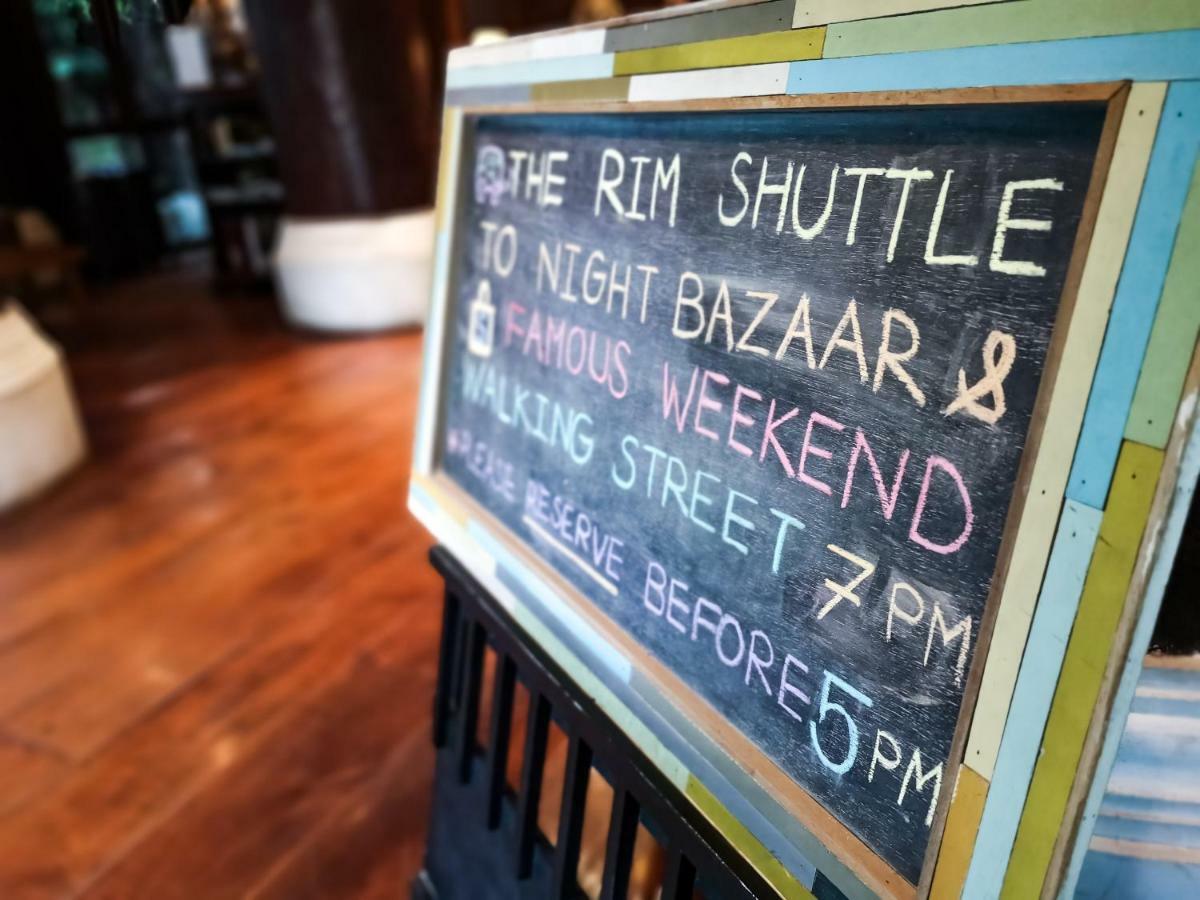 THE RIM SHUTTLE
TO NIGHT BAZAAR &
FAMOUS WEEKEND
WALKING STREET 7PM
*PLEASE RESERVE BEFORE 5PM